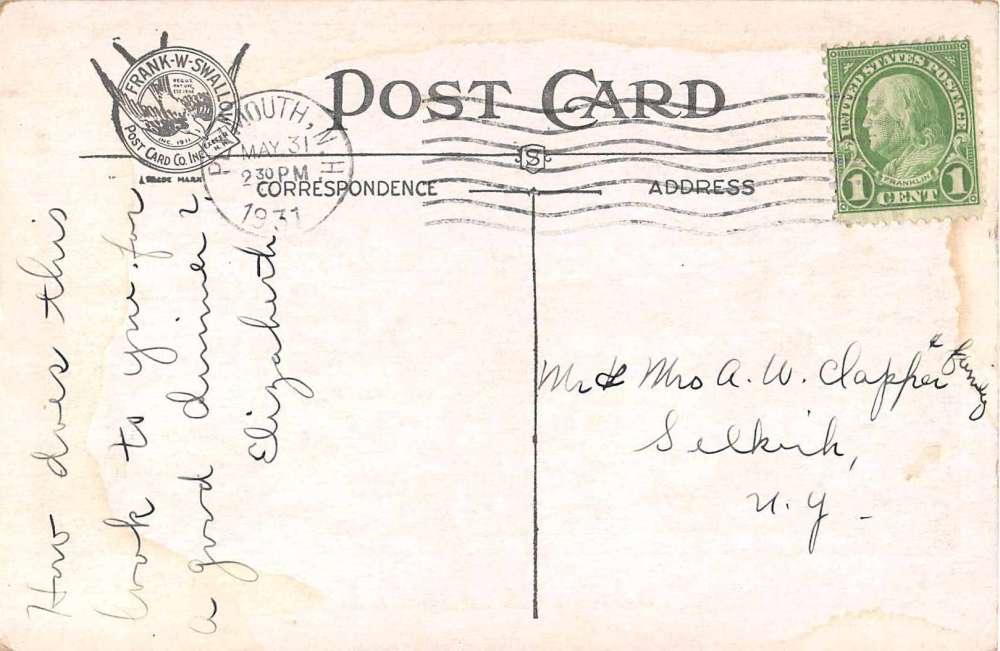 FRANK-W-SWALLOW
POST CARD CO. INC.
INC. 1911
TRADE MARK
POST CARD
MOUTH, N.H
MAY 31
2 30 PM
1931
UNITED STATES POSTAGE
FRANKLIN
1 CENT 1
S
CORRESPONDENCE
ADDRESS
How does this
look to you for
a good dinner?
Elizabeth.
Mr & Mrs A. W. Clapper & Family
Selkirk,
N. Y -